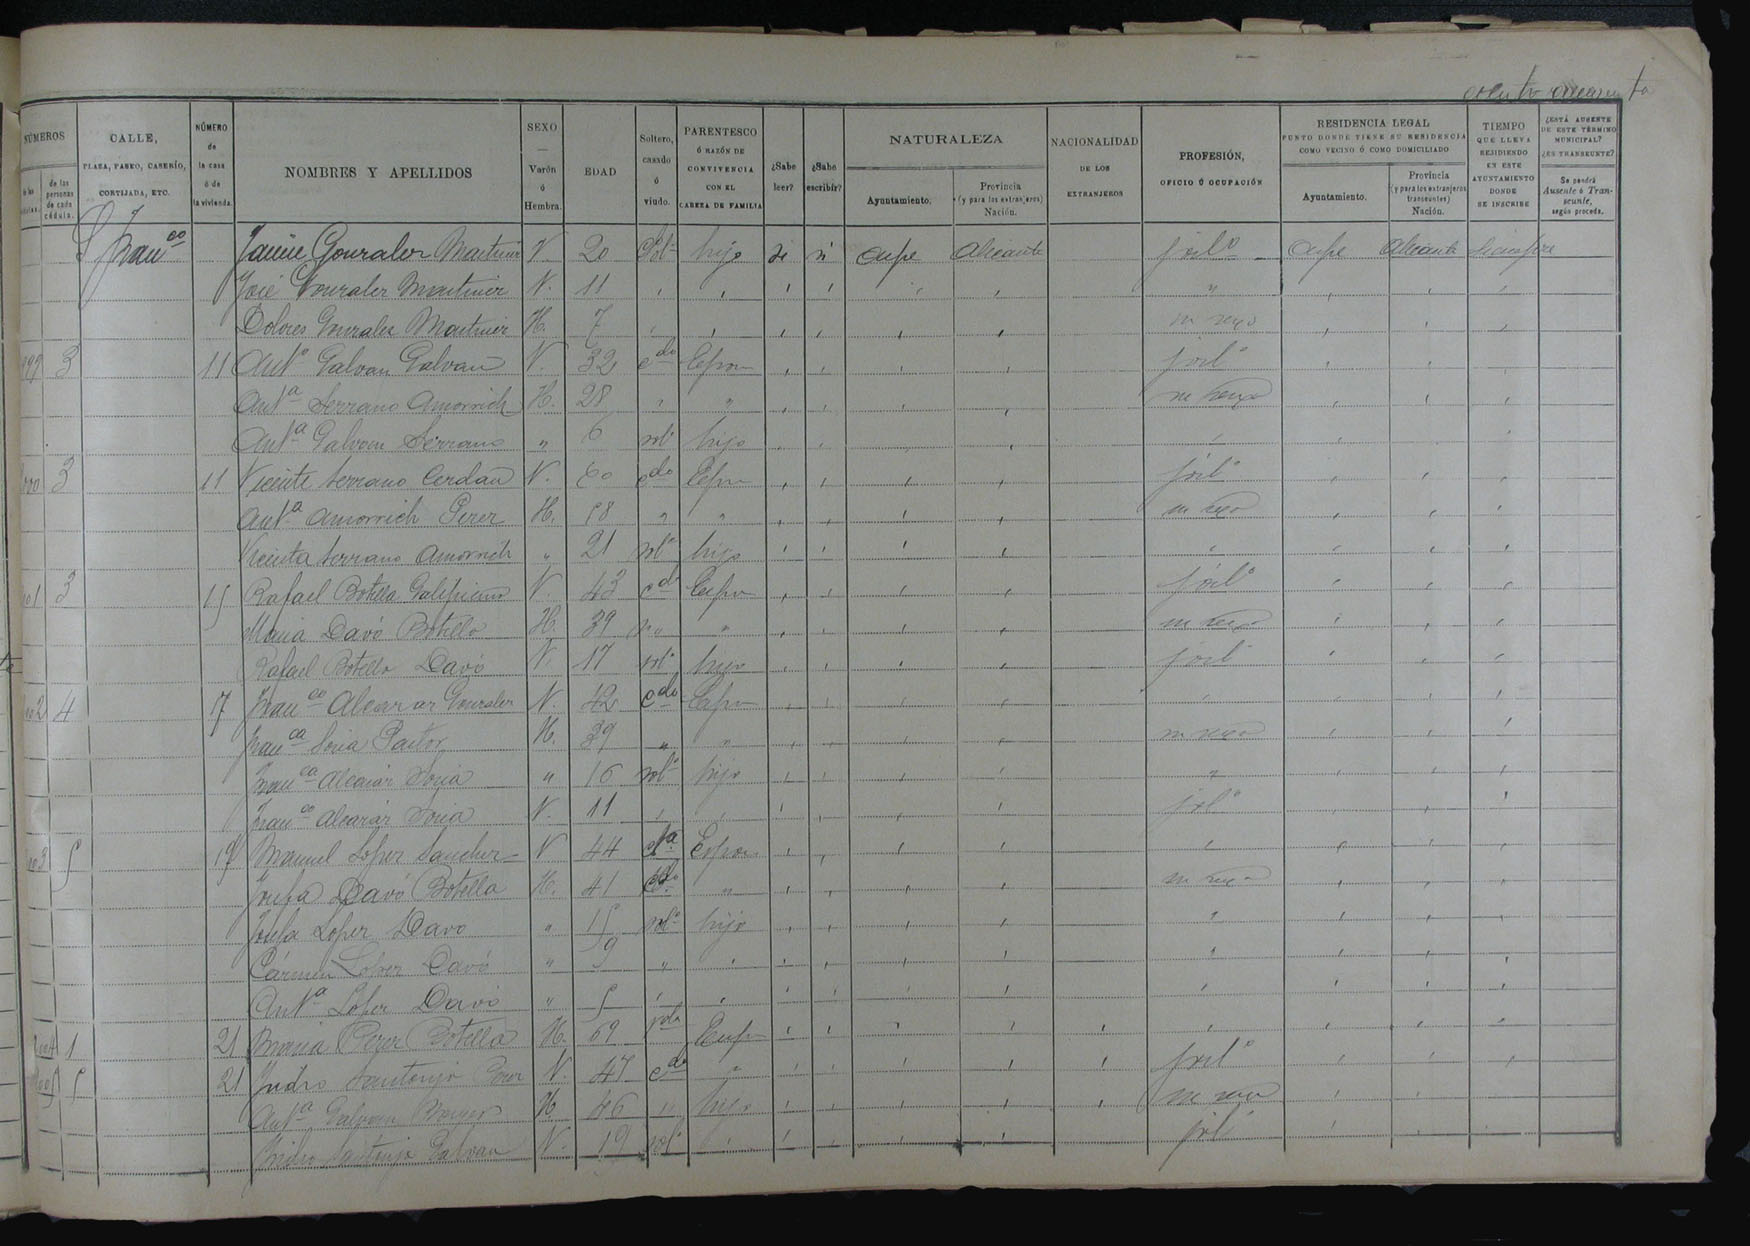 ciento cincuenta
NÚMEROS
de las cédulas.
de las personas de cada cédula.
CALLE, PLAZA, PASEO, CASERÍO, CORTIJADA, ETC.
NÚMERO de la casa ó de la vivienda.
NOMBRES Y APELLIDOS
SEXO — Varón ó Hembra.
EDAD
Soltero, casado ó viudo.
PARENTESCO Ó RAZÓN DE CONVIVENCIA CON EL CABEZA DE FAMILIA
¿Sabe leer?
¿Sabe escribir?
NATURALEZA
Ayuntamiento.
Provincia (y para los extranjeros) Nación.
NACIONALIDAD DE LOS EXTRANJEROS
PROFESIÓN, OFICIO Ó OCUPACIÓN
RESIDENCIA LEGAL
PUNTO DONDE TIENE SU RESIDENCIA COMO VECINO Ó COMO DOMICILIADO
Ayuntamiento.
Provincia (y para los extranjeros transeuntes) Nación.
TIEMPO QUE LLEVA RESIDIENDO EN ESTE AYUNTAMIENTO DONDE SE INSCRIBE
¿ESTÁ AUSENTE DE ESTE TÉRMINO MUNICIPAL? ¿ES TRANSEUNTE?
Se pondrá Ausente ó Transeunte, según proceda.
S Franco Jaime Gonzalez Martinez V. 20 Solo hijo si si Aspe Alicante jorlo Aspe Alicante siempre
José Gonzalez Martinez V. 11 , , , , , , " , , ,
Dolores Gonzalez Martinez H. 7 , , , , , , su sexo , , ,
999 3 11 Anto Galvan Galvan V. 32 cdo Espo , , , , jorlo , ,
Anta Serrano Amorrich H. 28 " " , , , , su sexo , , ,
Anta Galvan Serrano " 6 solo hijo , , , , , , ,
3 11 Vicente Serrano Cerdan V. 60 cdo Espo , , , , jorlo , , ,
Anta Amorrich Perez H. 58 " " , , , , su sexo , , ,
Vicenta Serrano Amorrich " 21 solo hijo , , , , , , , ,
3 15 Rafael Botella Galipienso V. 43 cdo Espo , , , , jorlo , , ,
Maria Davó Botella H. 39 " " , , , , su sexo , , ,
Rafael Botella Davó V. 17 solo hijo , , , , jorlo , , ,
4 17 Franco Alcaraz Gonzalez V. 42 cdo Espo , , , , , , , ,
Franca Soria Pastor H. 39 " " , , , , su sexo , , ,
Franca Alcaraz Soria " 16 solo hijo , , , , " , , ,
Franco Alcaraz Soria V. 11 , , , , , , jorlo , ,
5 19 Manuel Lopez Sanchez V 44 Espo , , , , , , , ,
Josefa Davó Botella H. 41 cdo " , , , , su sexo , , ,
Josefa Lopez Davo " 15 solo hijo , , , , " , , ,
Cármen Lopez Davó " 9 " , , , , , " , , ,
Anta Lopez Davó " 5 , , , , , , , , , ,
1 21 Maria Perez Botella H. 69 vda Espo , , , , , , , , ,
5 21 Isidro Santonja Perez V. 47 cdo " , , , , , jorlo , , ,
Anta Galvan H. 46 " hijo , , , , , su sexo , , ,
Isidro Santonja Galvan V. 19 solo , , , , , jorlo , , ,